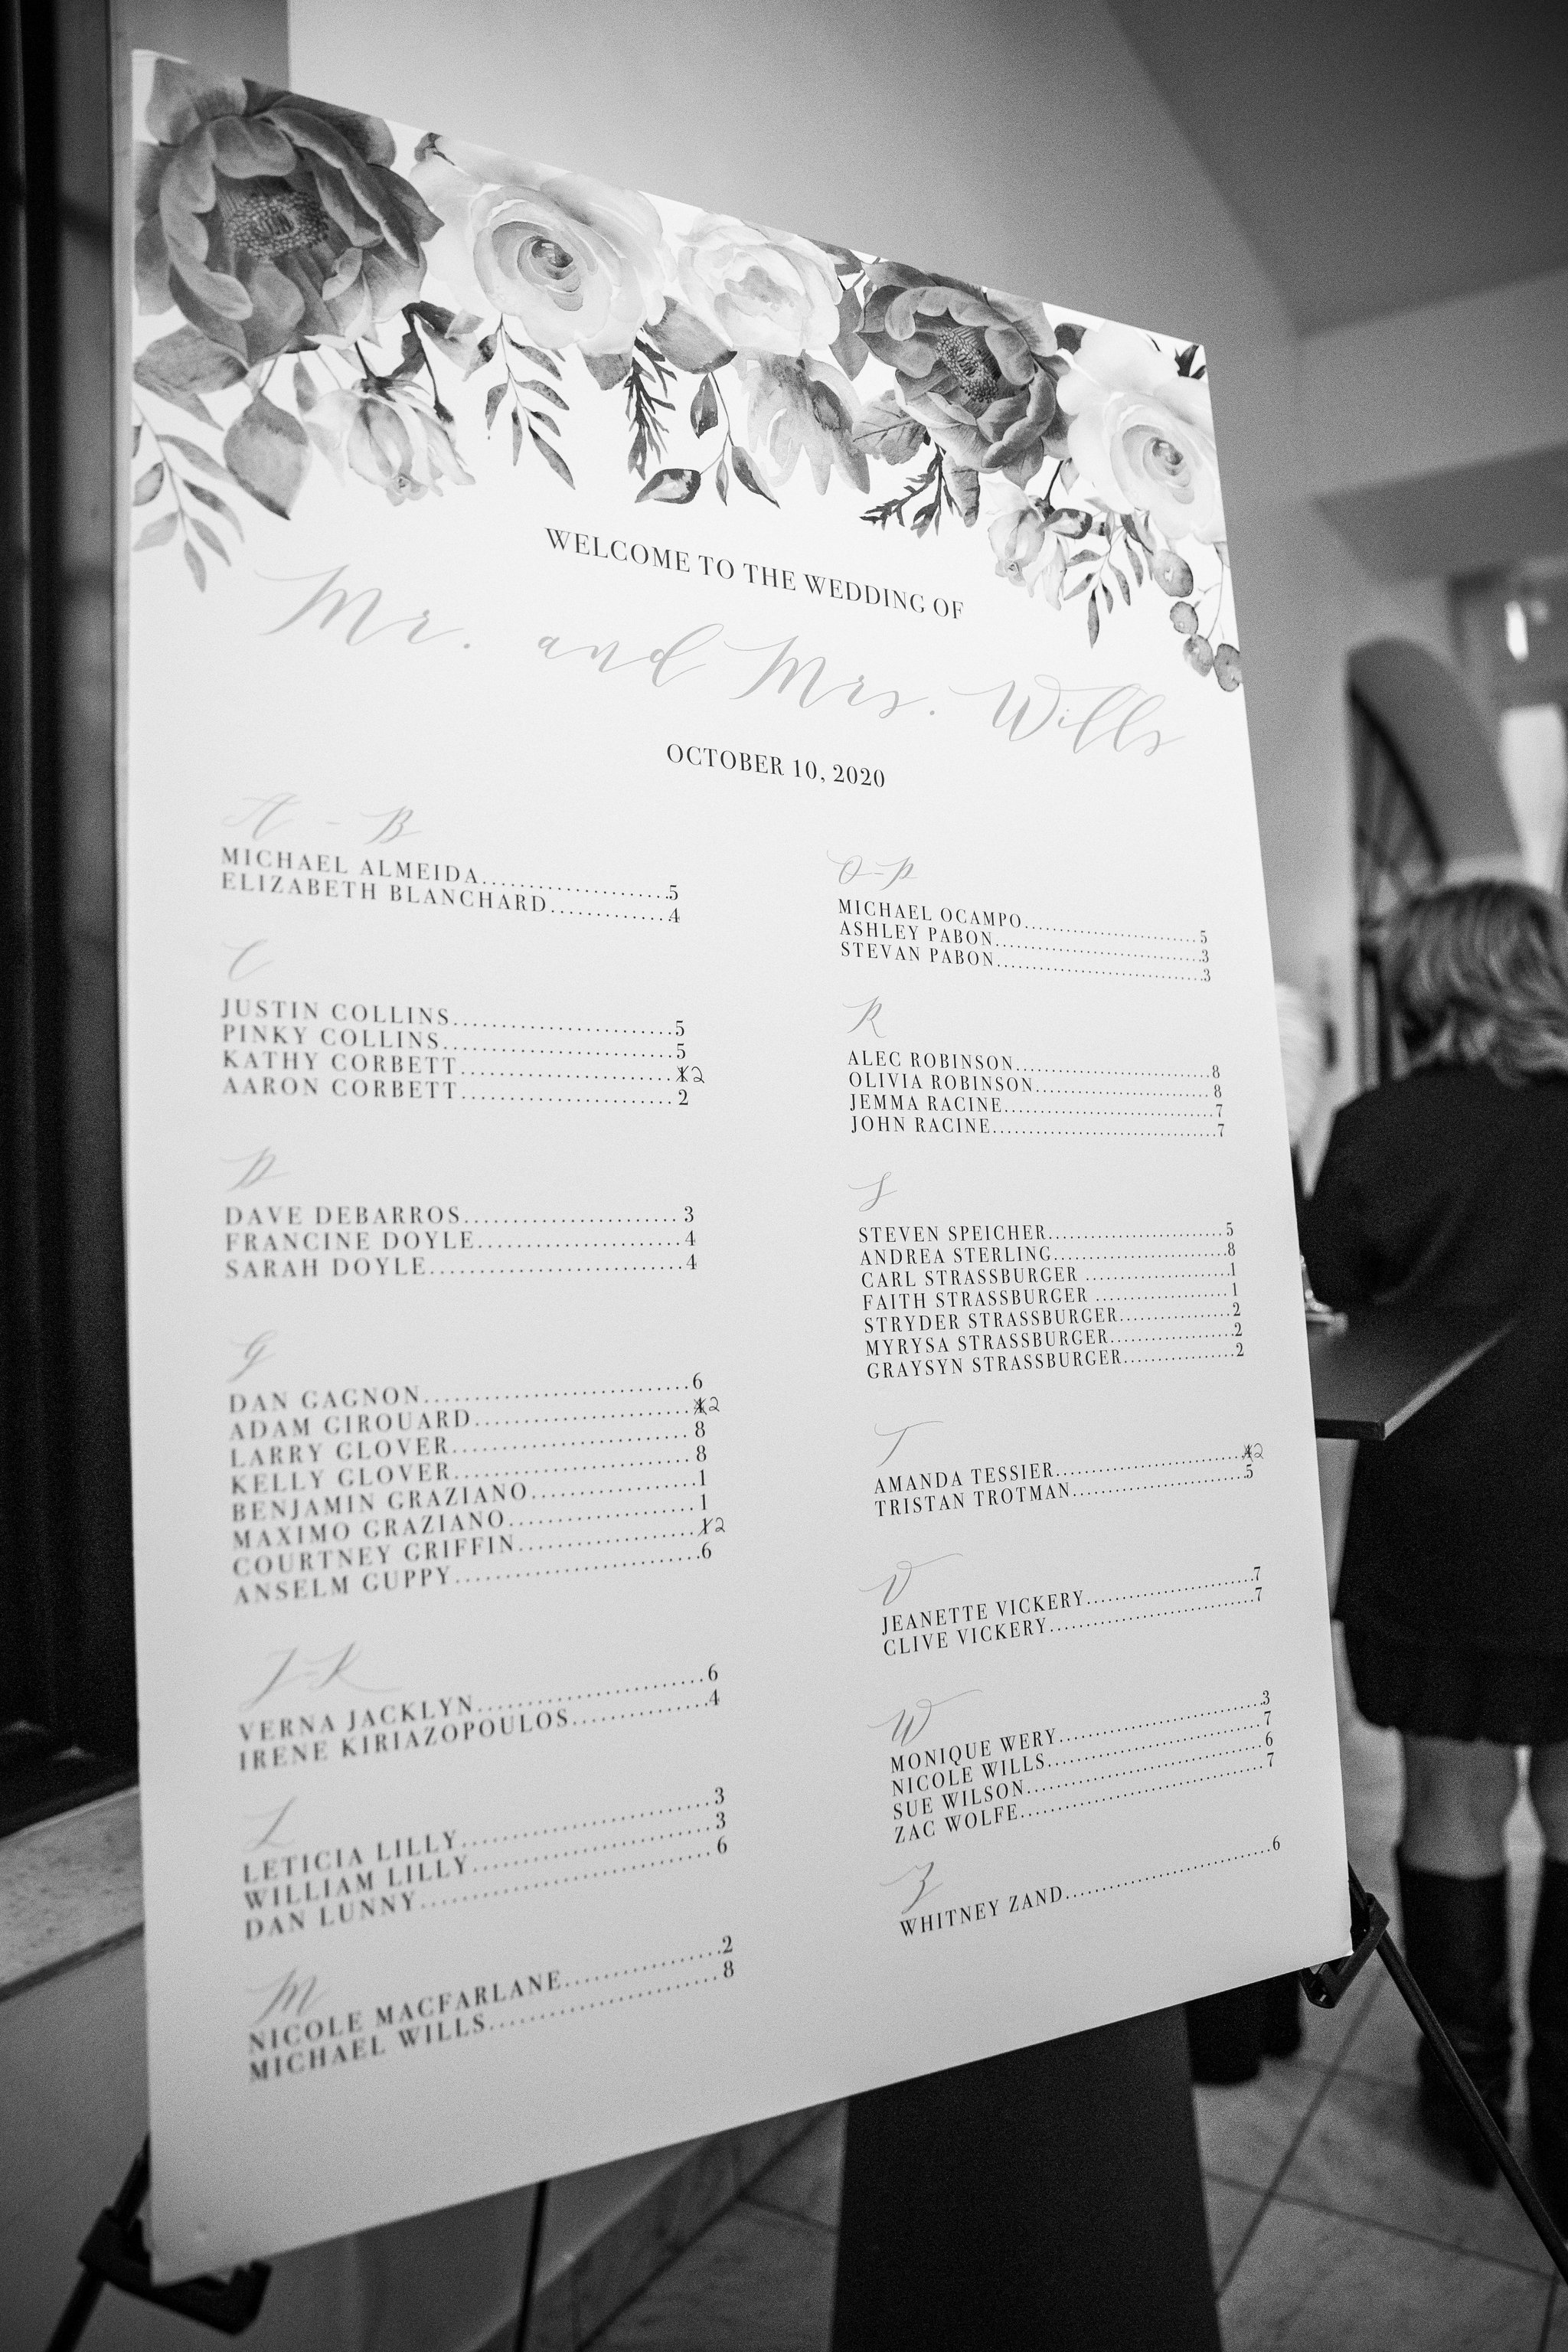 WELCOME TO THE WEDDING OF
Mr. and Mrs. Wills
OCTOBER 10, 2020
A - B
MICHAEL ALMEIDA....................5
ELIZABETH BLANCHARD..............4
C
JUSTIN COLLINS..........................5
PINKY COLLINS...........................5
KATHY CORBETT..........................2
AARON CORBETT.........................2
D
DAVE DEBARROS.........................3
FRANCINE DOYLE........................4
SARAH DOYLE.............................4
G
DAN GAGNON..............................6
ADAM GIROUARD.........................2
LARRY GLOVER............................8
KELLY GLOVER............................8
BENJAMIN GRAZIANO..................1
MAXIMO GRAZIANO.....................1
COURTNEY GRIFFIN....................12
ANSELM GUPPY...........................6
J-K
VERNA JACKLYN.........................6
IRENE KIRIAZOPOULOS...............4
L
LETICIA LILLY............................3
WILLIAM LILLY...........................3
DAN LUNNY................................6
M
NICOLE MACFARLANE.................2
MICHAEL WILLS..........................8
O-P
MICHAEL OCAMPO.......................5
ASHLEY PABON...........................3
STEVAN PABON...........................3
R
ALEC ROBINSON..........................8
OLIVIA ROBINSON.......................8
JEMMA RACINE...........................7
JOHN RACINE..............................7
S
STEVEN SPEICHER.......................5
ANDREA STERLING......................8
CARL STRASSBURGER ..................1
FAITH STRASSBURGER .................1
STRYDER STRASSBURGER.............2
MYRYSA STRASSBURGER..............2
GRAYSYN STRASSBURGER.............2
T
AMANDA TESSIER........................2
TRISTAN TROTMAN.....................5
V
JEANETTE VICKERY.....................7
CLIVE VICKERY..........................7
W
MONIQUE WERY..........................3
NICOLE WILLS............................7
SUE WILSON...............................6
ZAC WOLFE................................7
Z
WHITNEY ZAND..........................6